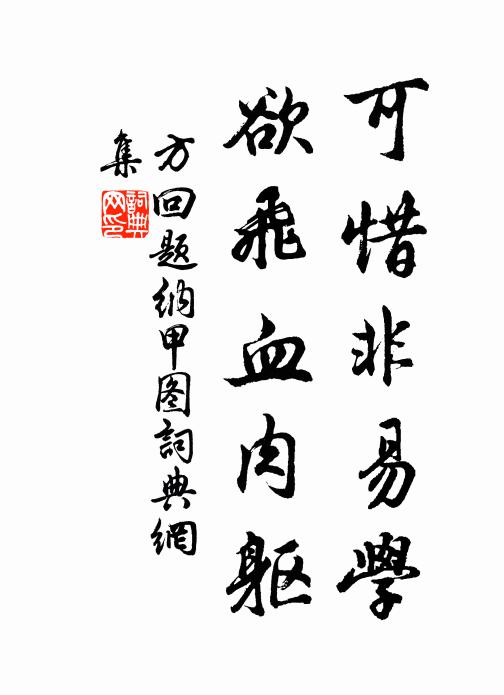 可惜非易學
欲飛血肉軀
方回題納甲图詞典網
集
詞典
网印